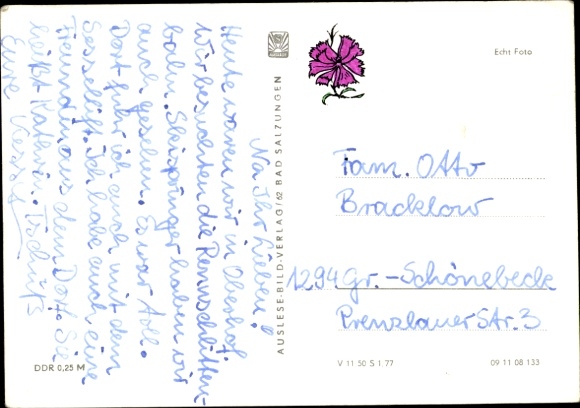 Na Ihr Lieben!
Heute waren wir in Oberhof.
Wir besuchten die Rennschlitten-
bahn. Skispringer haben wir
auch gesehen. Es war toll.
Dort fuhr ich auch mit dem
Sessellift. Ich habe auch eine
Freundin aus dem Dorf. Sie
heißt Kathrin. Tschüß
Eure
DDR 0,25 M
AUSLESE-BILD-VERLAG/62 BAD SALZUNGEN
Echt Foto
Fam. Otto
Bracklow
1294 Gr.-Schönebeck
Prenzlauer Str. 3
V 11 50 S 1 77
09 11 08 133